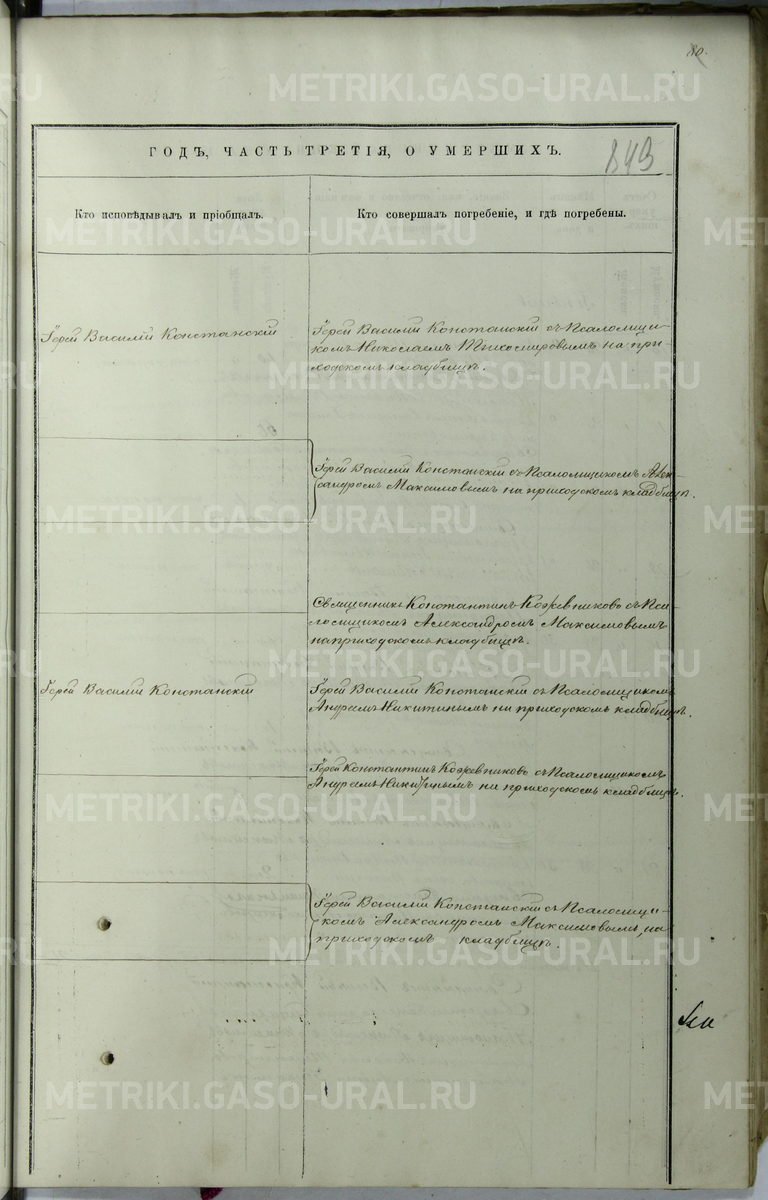 80.
ГОДЪ, ЧАСТЬ ТРЕТІЯ, О УМЕРШИХЪ.
843
Кто исповѣдывалъ и пріобщалъ.
Кто совершалъ погребеніе, и гдѣ погребены.
Іерей Василій Констанскій
Іерей Василій Констанскій съ Псаломщи-
комъ Николаемъ Тихомировымъ на при-
ходскомъ кладбищѣ.
Іерей Василій Констанскій съ Псаломщикомъ Алек-
сандромъ Максимовымъ на приходскомъ кладбищѣ.
Священникъ Константинъ Кожевниковъ съ Пса-
ломщикомъ Александромъ Максимовымъ
на приходскомъ кладбищѣ.
Іерей Василій Констанскій
Іерей Василій Констанскій съ Псаломщикомъ
Андреемъ Никитинымъ на приходскомъ кладбищѣ.
Іерей Константинъ Кожевниковъ съ Псаломщикомъ
Андреемъ Никитинымъ на приходскомъ кладбищѣ.
Іерей Василій Констанскій съ Псаломщи-
комъ Александромъ Максимовымъ, на
приходскомъ кладбищѣ.
METRIKI.GASO-URAL.RU